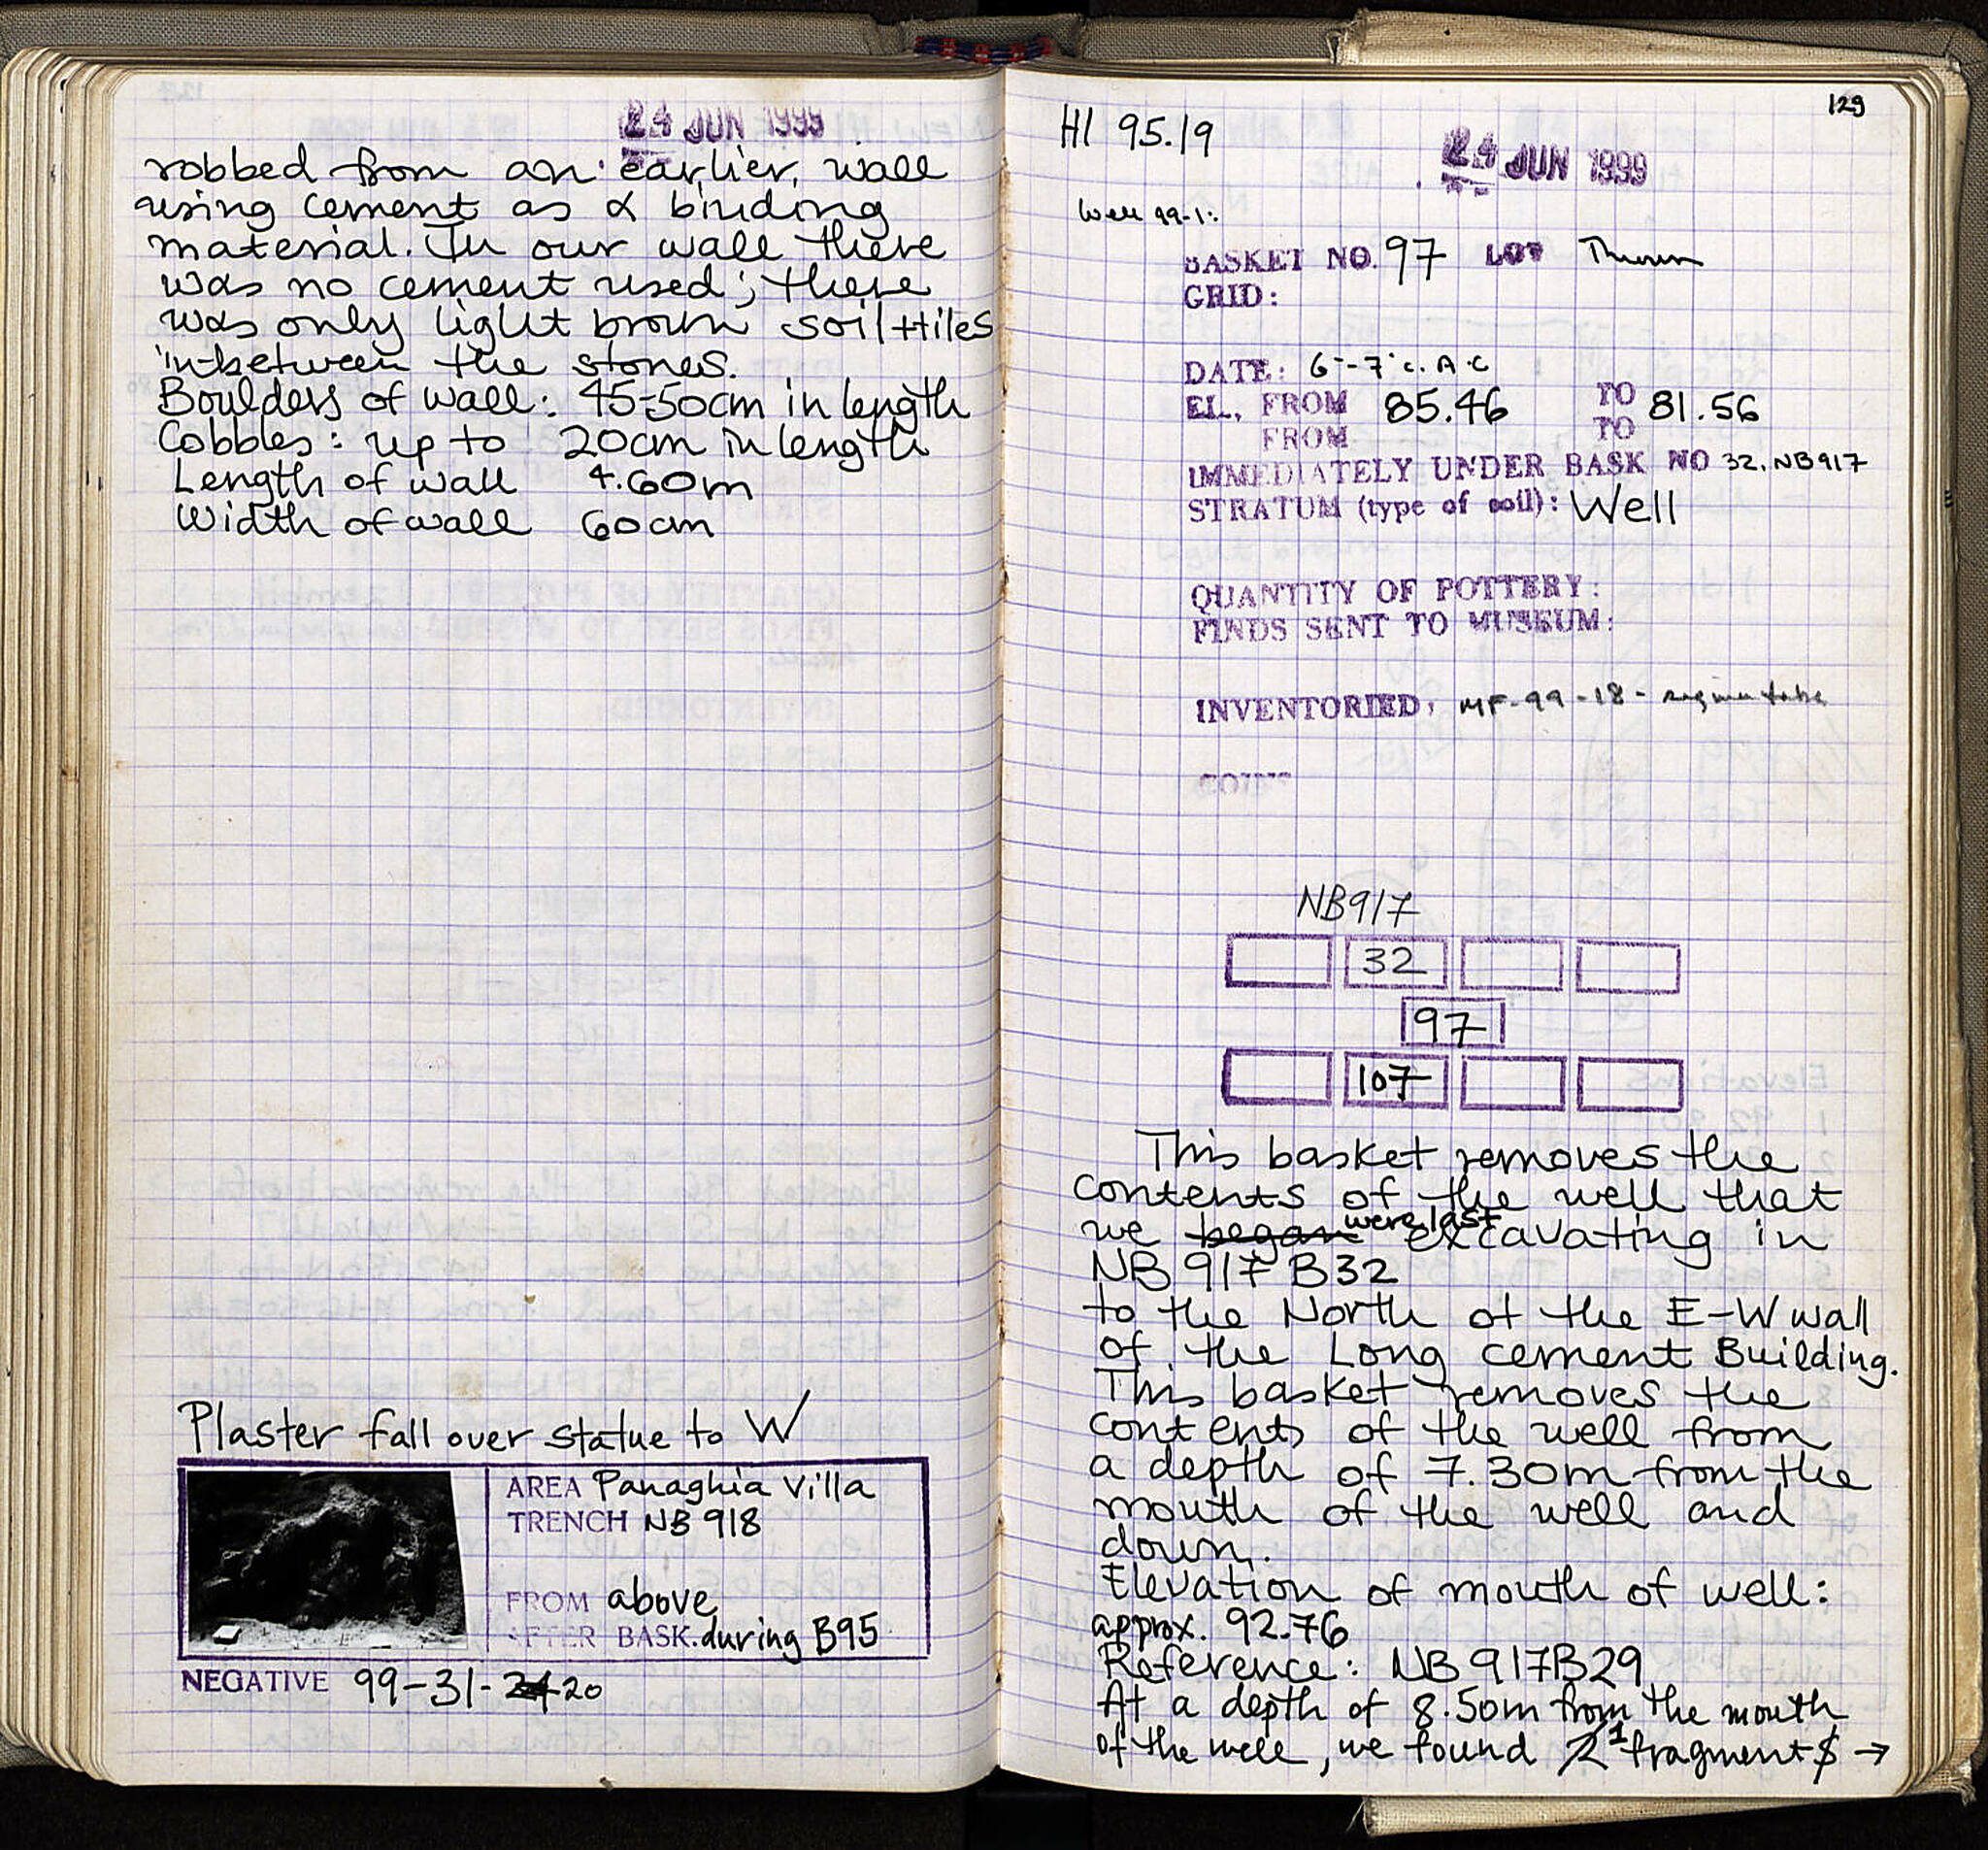 24 JUN 1999
robbed from an earlier, wall
using cement as a binding
material. In our wall there
was no cement used; there
was only light brown soil+tiles
in-between the stones.
Boulders of wall: 45-50cm in length
Cobbles: up to 20cm in length
Length of wall 4.60m
Width of wall 60cm
Plaster fall over statue to W
AREA Panaghia Villa
TRENCH NB 918
FROM above
AFTER BASK. during B95
NEGATIVE 99-31-20
129
HI 95.19
24 JUN 1999
Well 99-1:
BASKET NO. 97 LOT
GRID:
DATE: 6-7 c. A.C
EL., FROM 85.46 TO 81.56
FROM TO
IMMEDIATELY UNDER BASK NO 32, NB917
STRATUM (type of soil): Well
QUANTITY OF POTTERY:
FINDS SENT TO MUSEUM:
INVENTORIED, MF-99-18-
COINS
NB917
32
97
107
This basket removes the
contents of the well that
we began were last excavating in
NB 917 B32
to the North of the E-W wall
of the Long cement Building.
This basket removes the
contents of the well from
a depth of 7.30m from the
mouth of the well and
down.
Elevation of mouth of well:
approx. 92.76
Reference: NB917B29
At a depth of 8.50m from the mouth
of the well, we found 1 fragment →